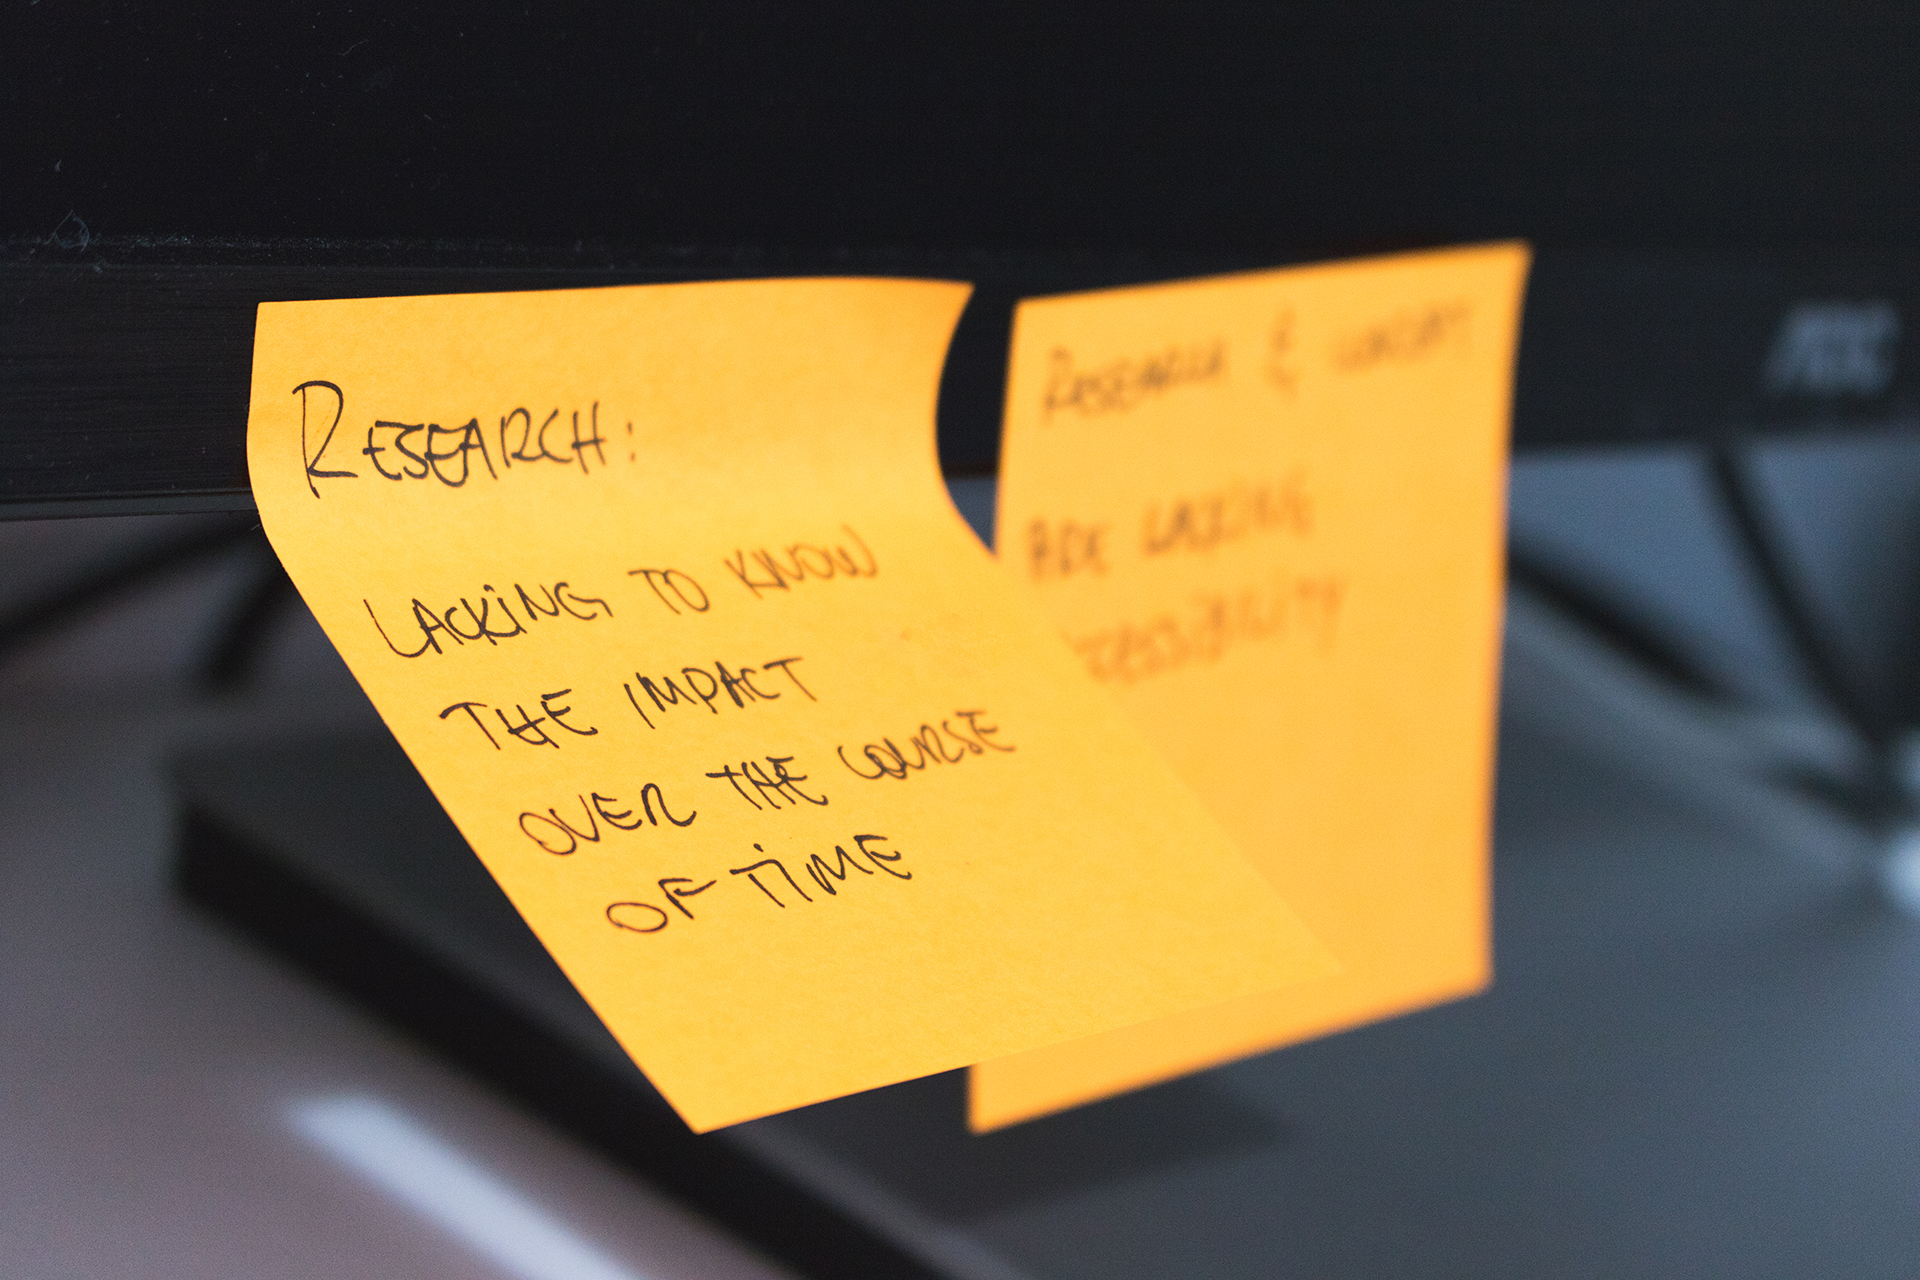 RESEARCH:
LACKING TO KNOW
THE IMPACT
OVER THE COURSE
OF TIME
RESEARCH &
ARE LACKING